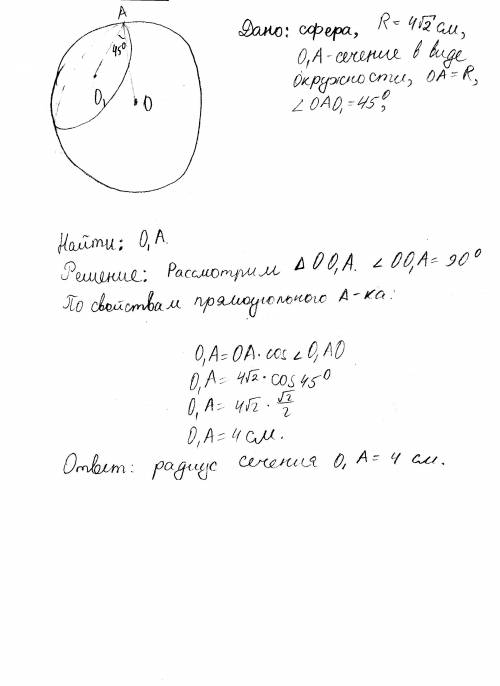 A
45°
O₁
O
Дано: сфера, R = 4√2 см,
O₁A - сечение в виде
окружности, OA = R,
∠OAO₁ = 45°,
Найти: O₁A.
Решение: Рассмотрим △OO₁A. ∠OO₁A = 90°
По свойствам прямоугольного Δ-ка:
O₁A = OA · cos ∠O₁AO
O₁A = 4√2 · cos 45°
O₁A = 4√2 · √2/2
O₁A = 4 см.
Ответ: радиус сечения O₁A = 4 см.